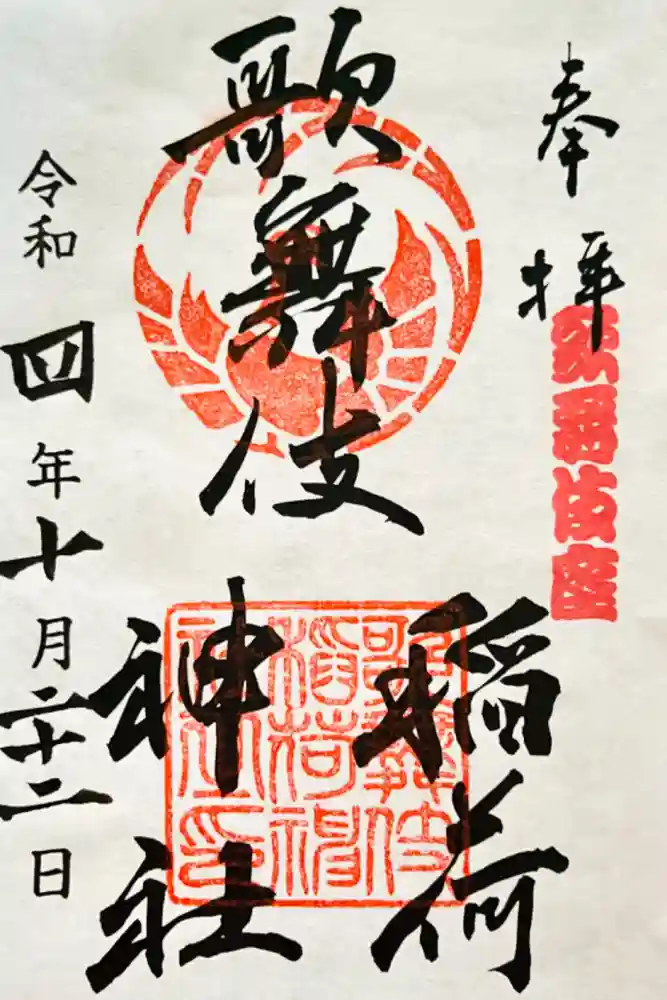 奉拝
歌舞伎座
歌舞伎
稲荷
神社
歌舞伎
稲荷神
社之印
令和四年十月二十二日